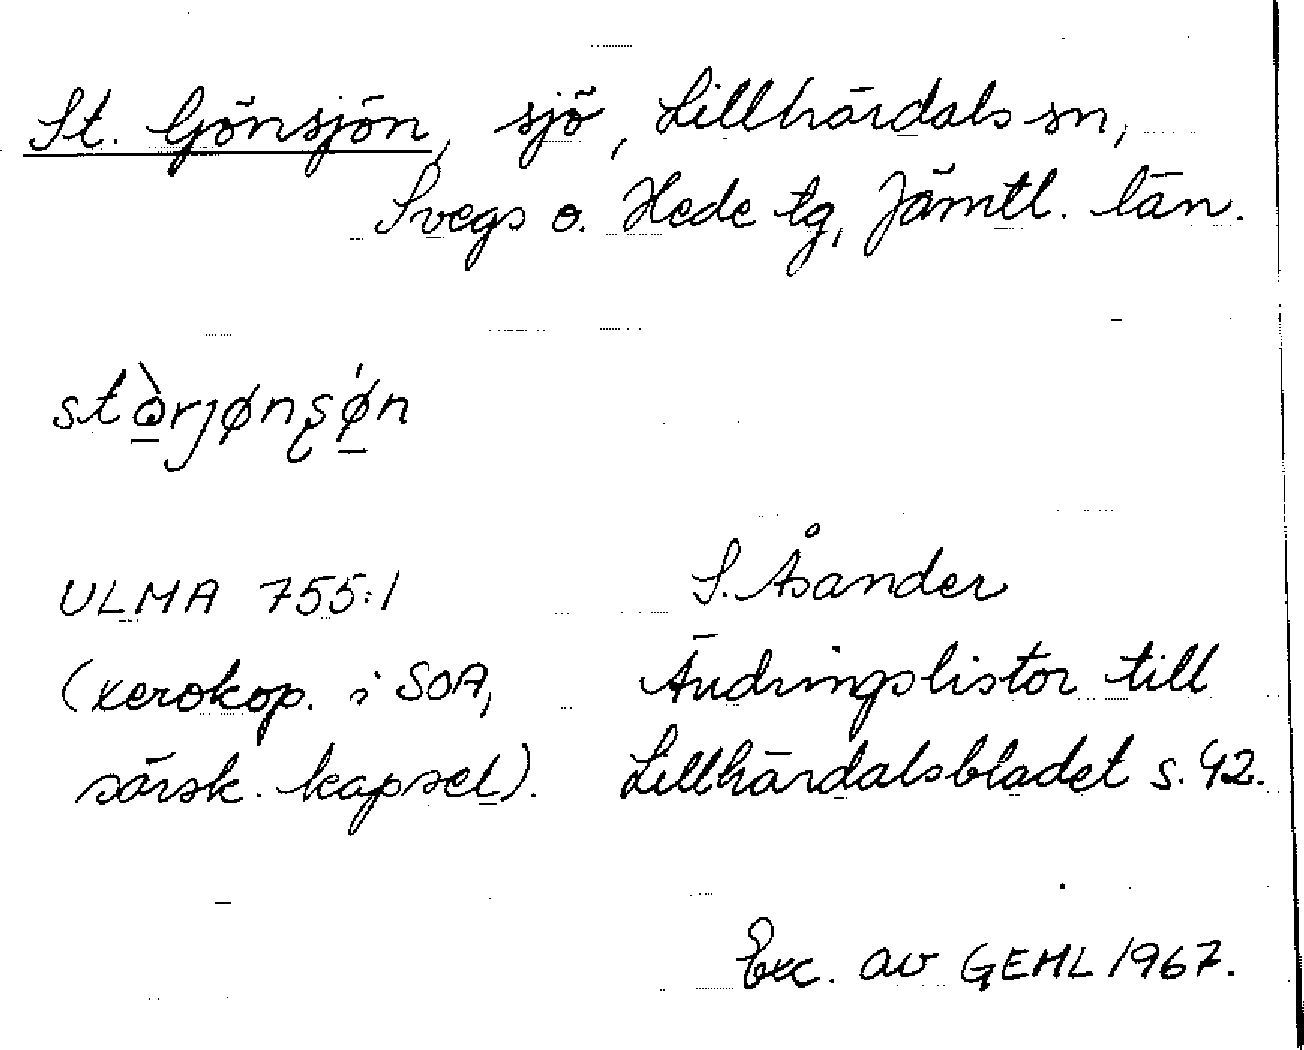 St. Gönsjön, sjö, Lillhärdals sn,
Svegs o. Hede tg, Jämtl. län.
stò̱rjønʂǿ̱n
ULMA 755:1
(xerokop. i SOA,
särsk. kapsel).
S. Åsander
Ändringslistor till
Lillhärdalsbladet s. 42.
Exc. av GEHL 1967.